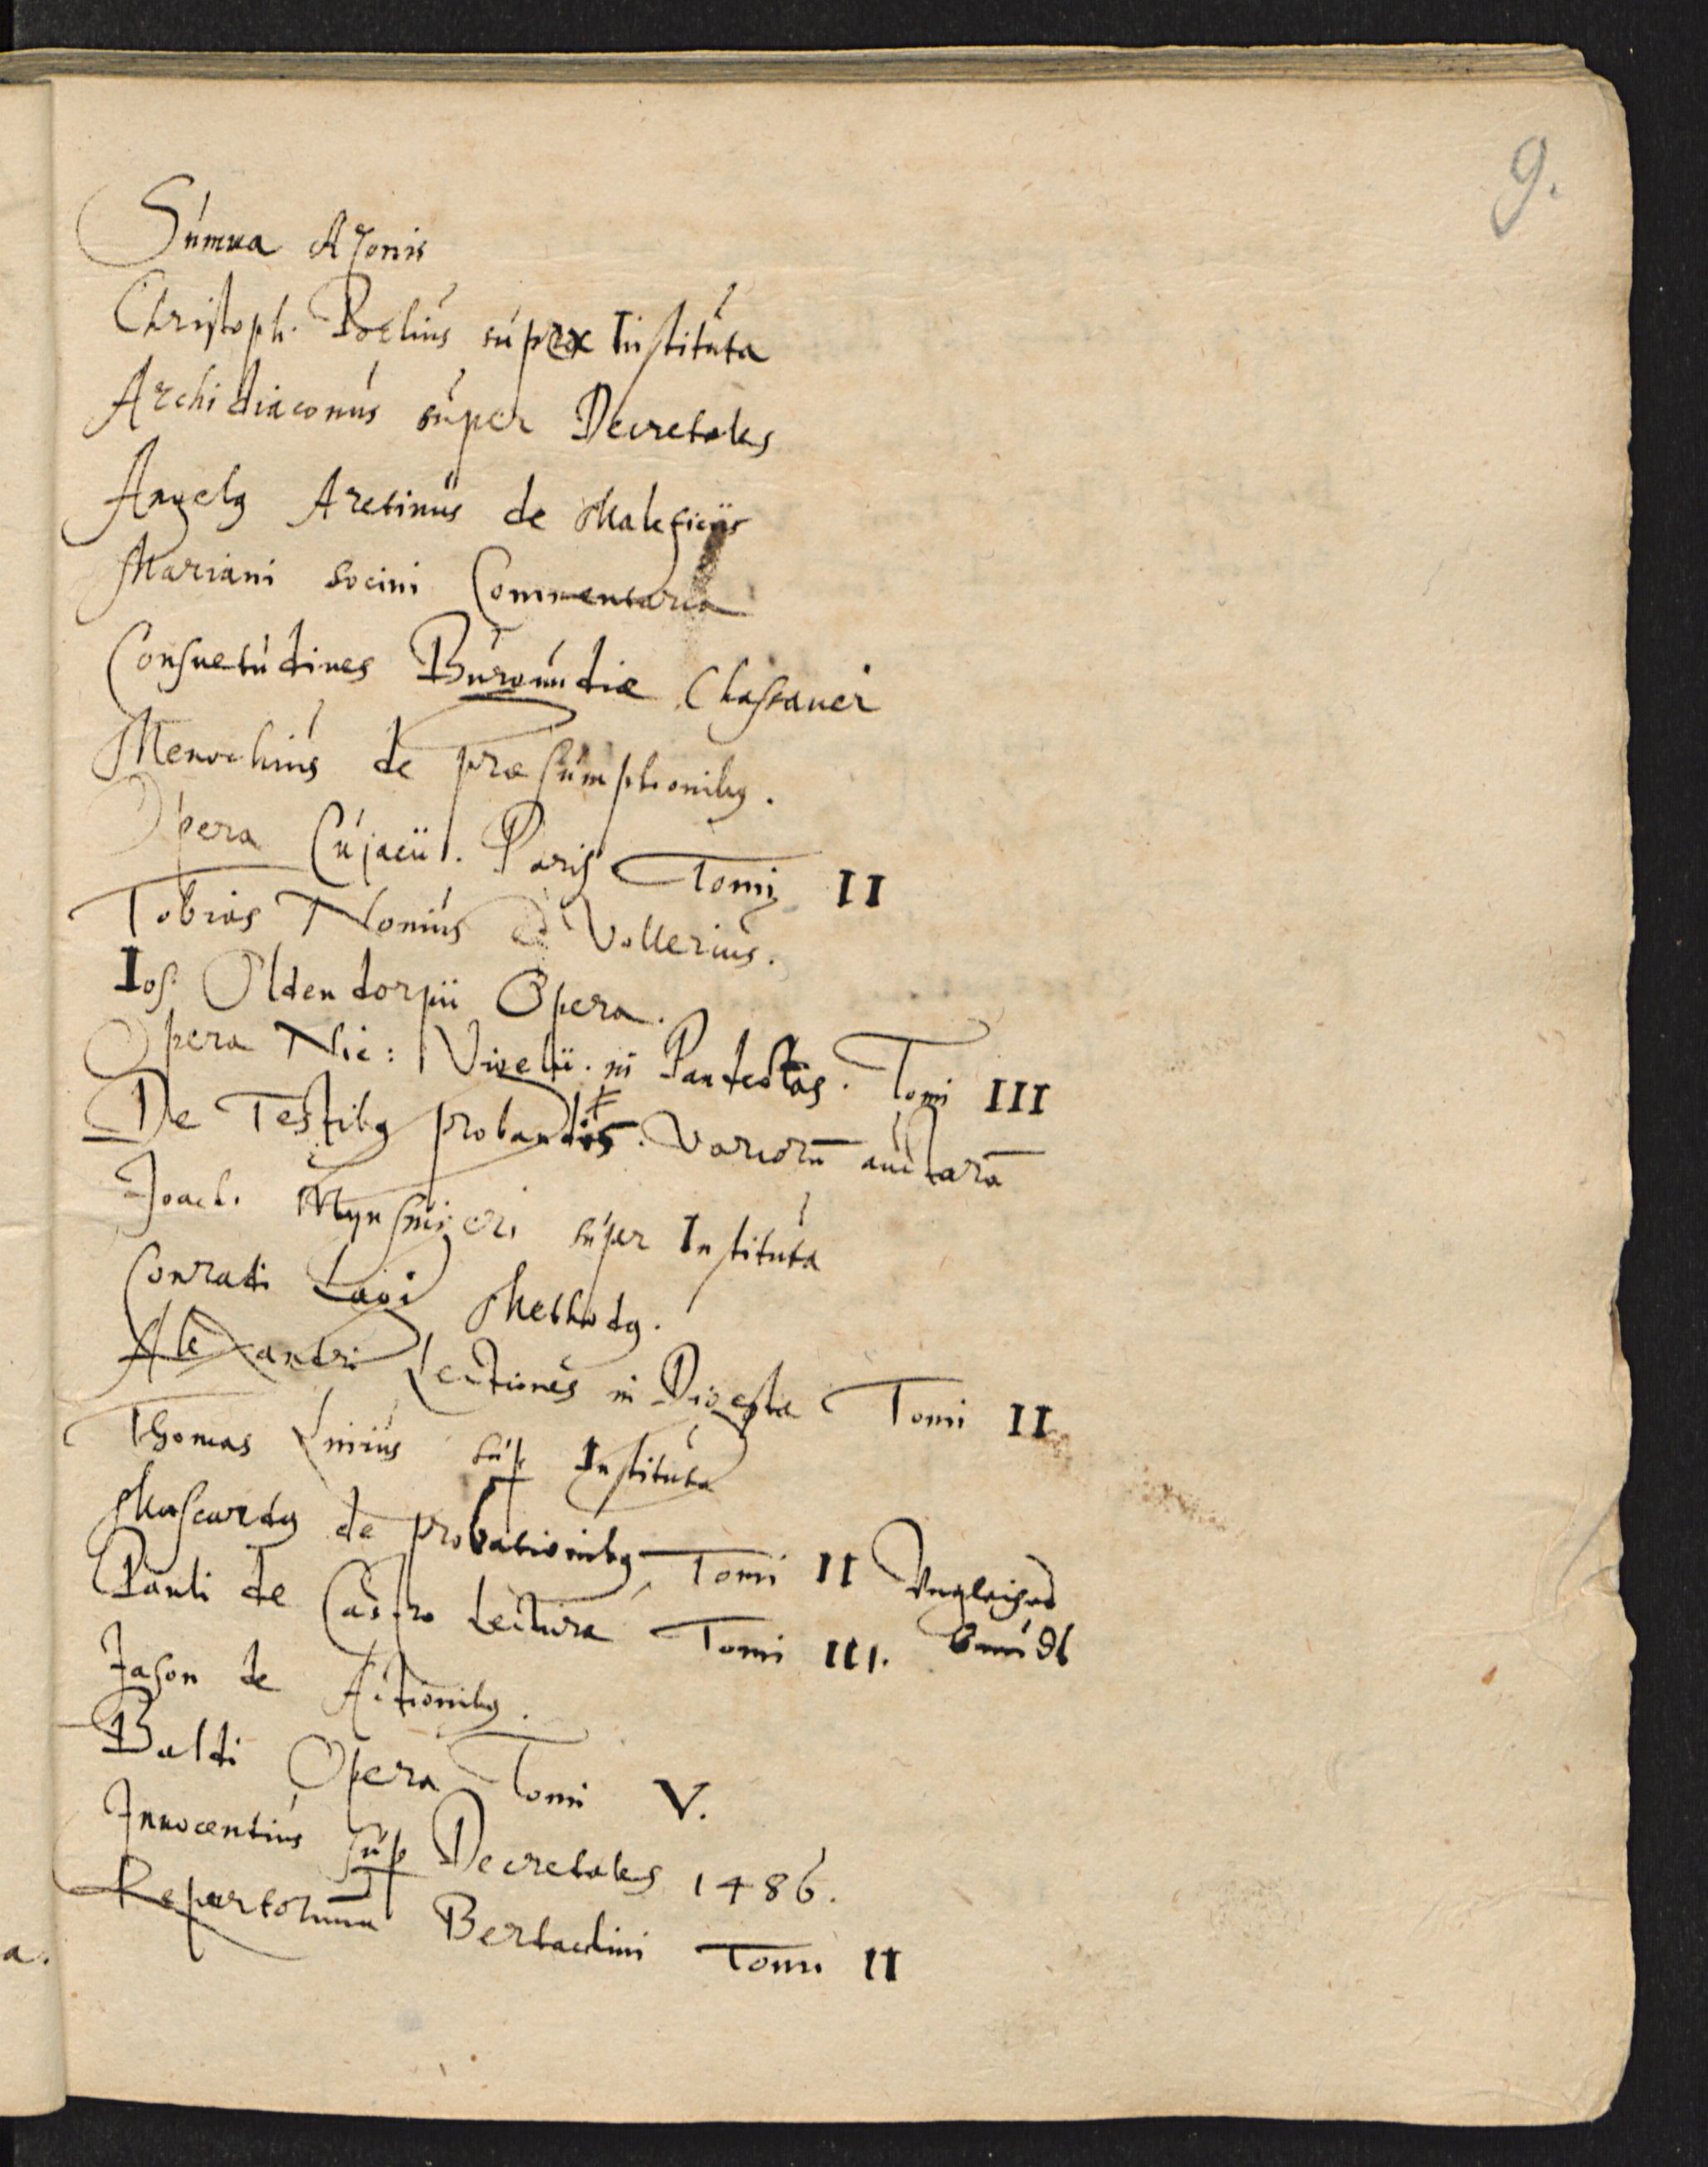 9.
Summa Azonis
Christoph. Portius super Instituta
Archidiaconus super Decretales
Angelꝰ Aretinus de Maleficiis
Mariani Socini Commentaria
Consuetudines Burgundiæ Chassanei
Menochius de præsumptionibꝰ.
Opera Cujacii. Paris Tomi II
Tobias Nonius
Ios. Oldendorpii Opera.
Opera Nic: Vigelii. in Pandectas. Tomi III
De Testibꝰ probandis. Variorū auctorū
Joach. Mynsingeri super Instituta
Conradi Lagi Methodꝰ.
Alexandri Lectiones in Digesta Tomi II
Thomas Linius suꝑ Instituta
Mascardꝰ de probationibꝰ Tomi II Ungleiches
Pauli de Castro Lectura Tomi III.
Jason de Actionibꝰ.
Baldi Opera Tomi V.
Innocentius suꝑ Decretales 1486.
Repertorium Bertachini Tomi II
a.